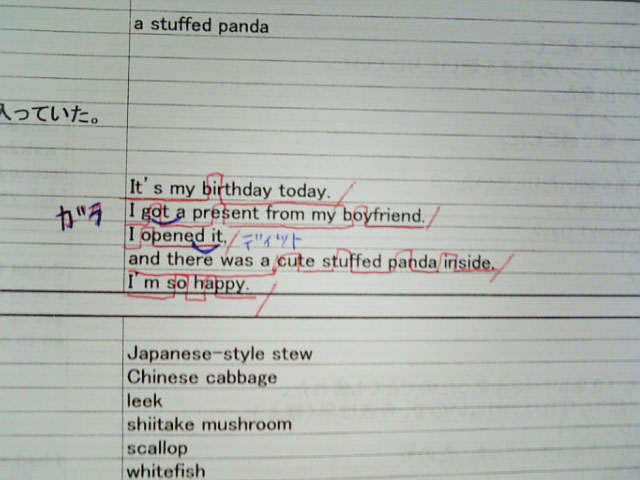 a stuffed panda
入っていた。
It's my birthday today.
ガラ
I got a present from my boyfriend.
I opened it, ディット
and there was a cute stuffed panda inside.
I'm so happy.
Japanese-style stew
Chinese cabbage
leek
shiitake mushroom
scallop
whitefish